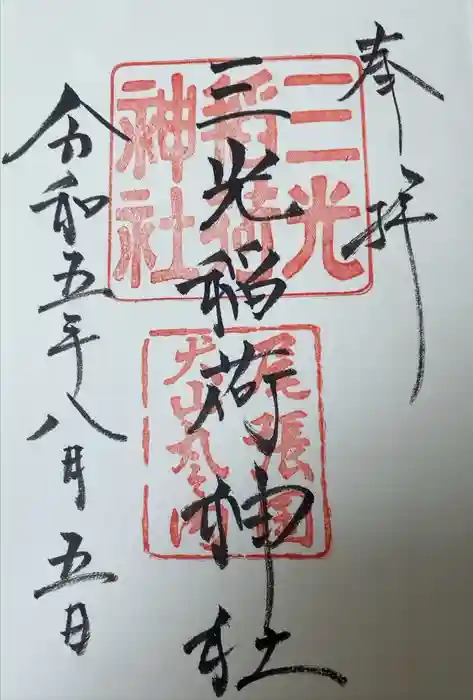 奉拝
三光稲荷神社
令和五年八月五日
三光
稲荷
神社
尾張国
犬山